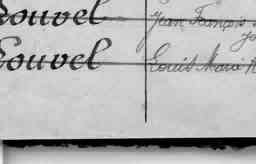 Louvel Jean François
Jo
Louvel Louis Marie A